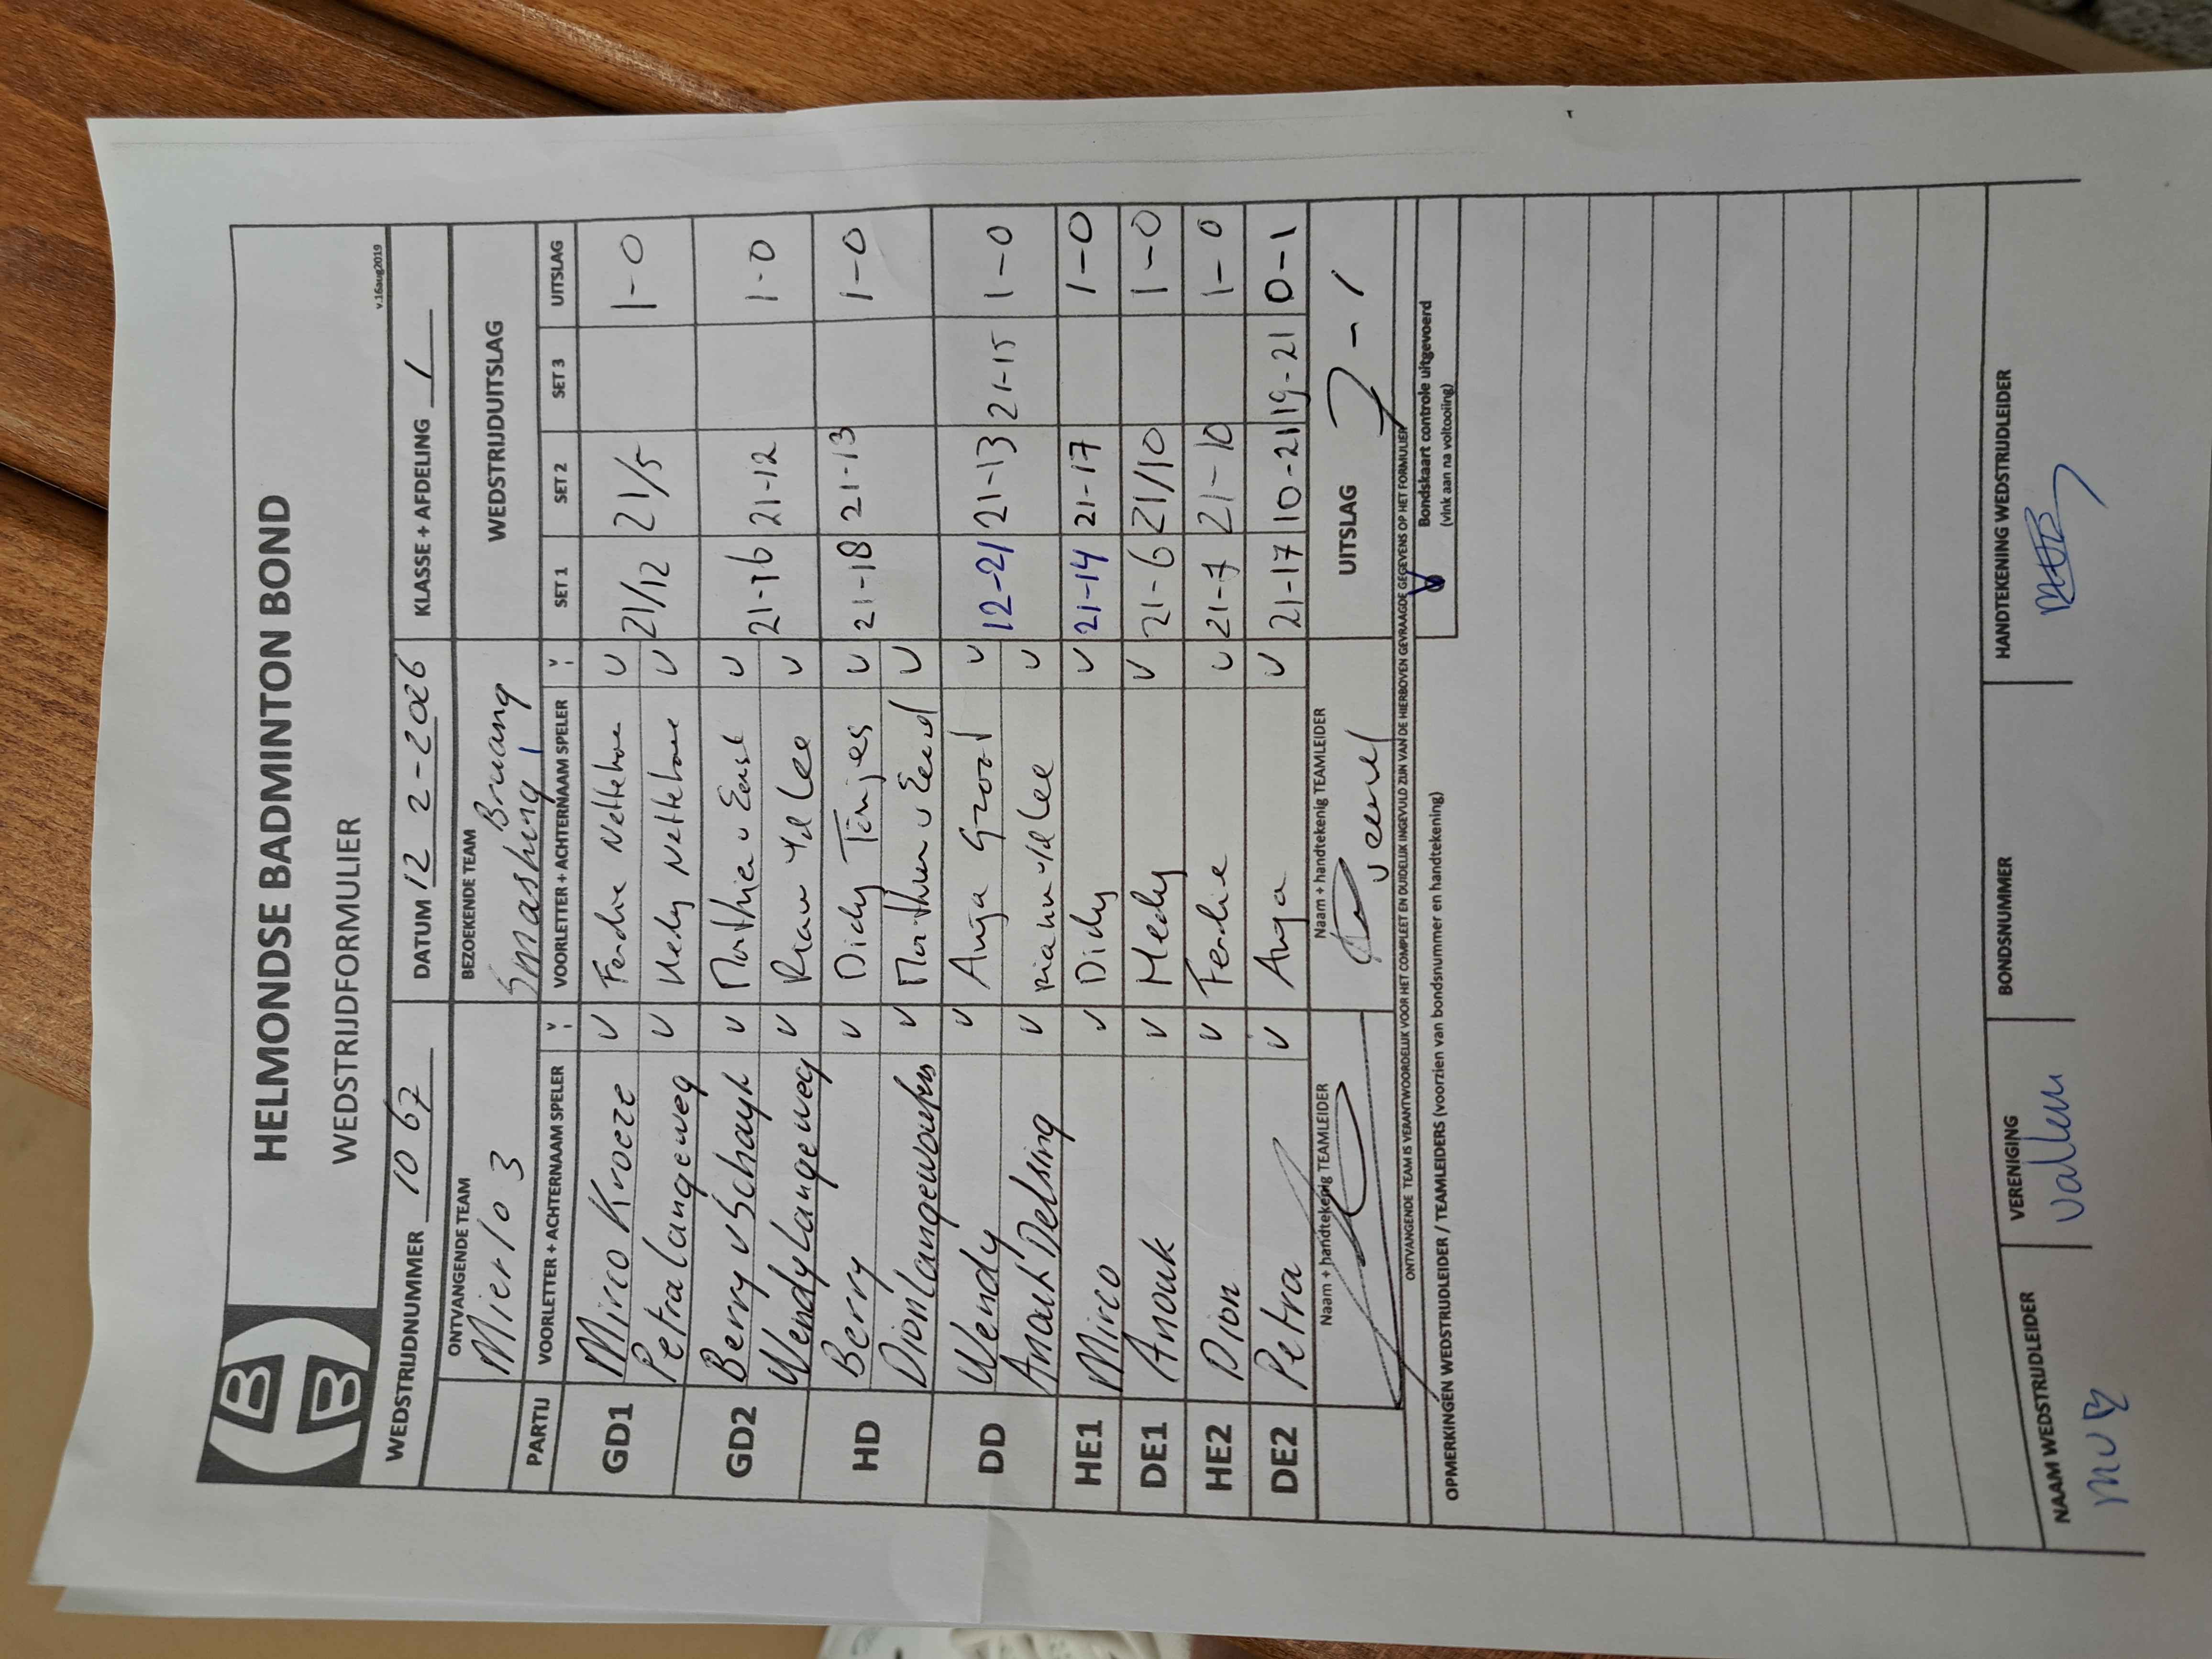 HELMONDSE BADMINTON BOND
WEDSTRIJDFORMULIER
v.16aug2019
WEDSTRIJDNUMMER 1067 DATUM 12 2-2026 KLASSE + AFDELING 1
ONTVANGENDE TEAM BEZOEKENDE TEAM WEDSTRIJDUITSLAG
Mierlo 3 Smashing Bruang 1
PARTIJ VOORLETTER + ACHTERNAAM SPELER V VOORLETTER + ACHTERNAAM SPELER V SET 1 SET 2 SET 3 UITSLAG
GD1 Mirco Kroeze V V 21/12 21/5 1-0
Petra Langeweg V V
GD2 Berry v Schayk V V 21-16 21-12 1-0
Wendy Langeweg V V
HD Berry V Dichy V 21-18 21-13 1-0
Dion V V
DD Wendy V Anja Groot V 12-21 21-13 21-15 1-0
Anouk Delsing V V
HE1 Mirco V Dichy V 21-14 21-17 1-0
DE1 Anouk V Hedy V 21-6 21/10 1-0
HE2 Dion V Ferdie V 21-7 21-10 1-0
DE2 Petra V Anja V 21-17 10-21 19-21 0-1
Naam + handtekenig TEAMLEIDER Naam + handtekenig TEAMLEIDER UITSLAG 7-1
ONTVANGENDE TEAM IS VERANTWOORDELIJK VOOR HET COMPLEET EN DUIDELIJK INGEVULD ZIJN VAN DE HIERBOVEN GEVRAAGDE GEGEVENS OP HET FORMULIER
Bondskaart controle uitgevoerd
(vink aan na voltooiing)
OPMERKINGEN WEDSTRIJDLEIDER / TEAMLEIDERS (voorzien van bondsnummer en handtekening)
NAAM WEDSTRIJDLEIDER VERENIGING BONDSNUMMER HANDTEKENING WEDSTRIJDLEIDER